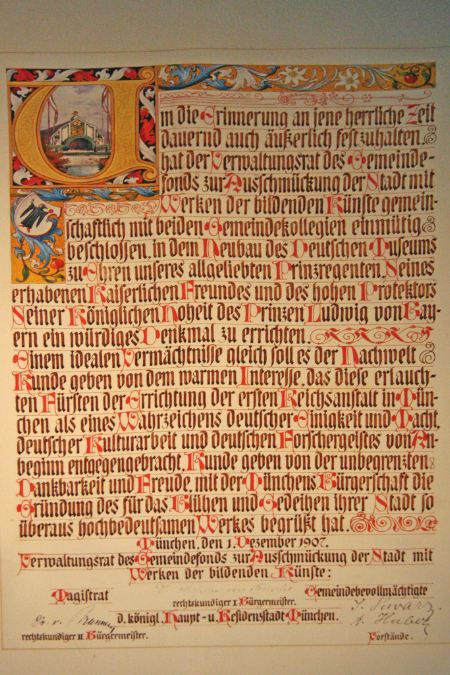 Um die Erinnerung an jene herrliche Zeit
dauernd auch äußerlich festzuhalten,
hat der Verwaltungsrat des Gemeinde-
fonds zur Ausschmückung der Stadt mit
Werken der bildenden Künste gemein-
schaftlich mit beiden Gemeindekollegien einmütig
beschlossen, in dem Neubau des Deutschen Museums
zu Ehren unseres allgeliebten Prinzregenten, Seines
erhabenen Kaiserlichen Freundes und des hohen Protektors
Seiner Königlichen Hoheit des Prinzen Ludwig von Bay-
ern ein würdiges Denkmal zu errichten.
Einem idealen Vermächtnisse gleich soll es der Nachwelt
Kunde geben von dem warmen Interesse, das diese erlauch-
ten Fürsten der Errichtung der ersten Reichsanstalt in Mün-
chen als eines Wahrzeichens deutscher Einigkeit und Macht,
deutscher Kulturarbeit und deutschen Forschergeistes von An-
beginn entgegengebracht, Kunde geben von der unbegrenzten
Dankbarkeit und Freude, mit der Münchens Bürgerschaft die
Gründung des für das Blühen und Gedeihen ihrer Stadt so
überaus hochbedeutsamen Werkes begrüßt hat.
München, den 1. Dezember 1907.
Verwaltungsrat des Gemeindefonds zur Ausschmückung der Stadt mit
Werken der bildenden Künste:
Magistrat
Gemeindebevollmächtigte
rechtskundiger I. Bürgermeister.
d. königl. Haupt- u. Residenzstadt München.
Dr. v.
A. Huber
rechtskundiger II. Bürgermeister.
Vorstände.